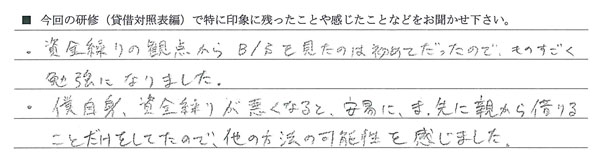 ■ 今回の研修（貸借対照表編）で特に印象に残ったことや感じたことなどをお聞かせ下さい。
・資金繰りの観点からB/Sを見たのは初めてだったので、ものすごく
勉強になりました。
・僕自身、資金繰りが悪くなると、安易に、ま、先に親から借りる
ことだけをしてたので、他の方法の可能性を感じました。